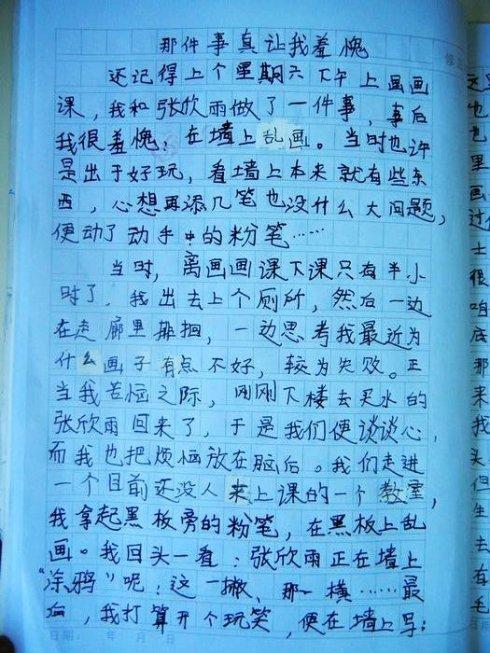 那件事真让我羞愧
还记得上个星期六下午上画画
课，我和张欣雨做了一件事，事后
我很羞愧：在墙上乱画。当时也许
是出于好玩，看墙上本来就有些东
西，心想再添几笔也没什么大问题，
便动了动手中的粉笔……
当时，离画画课下课只有半小
时了，我出去上个厕所，然后一边
在走廊里徘徊，一边思考我最近为
什么画子有点不好，较为失败。正
当我苦恼之际，刚刚下楼去买水的
张欣雨回来了，于是我们便谈谈心，
而我也把烦恼放在脑后。我们走进
一个目前还没人来上课的一个教室，
我拿起黑板旁的粉笔，在黑板上乱
画。我回头一看：张欣雨正在墙上
“涂鸦”呢：这一撇、那一横……最
后，我打算开个玩笑，便在墙上写：
日期： 年 月 日